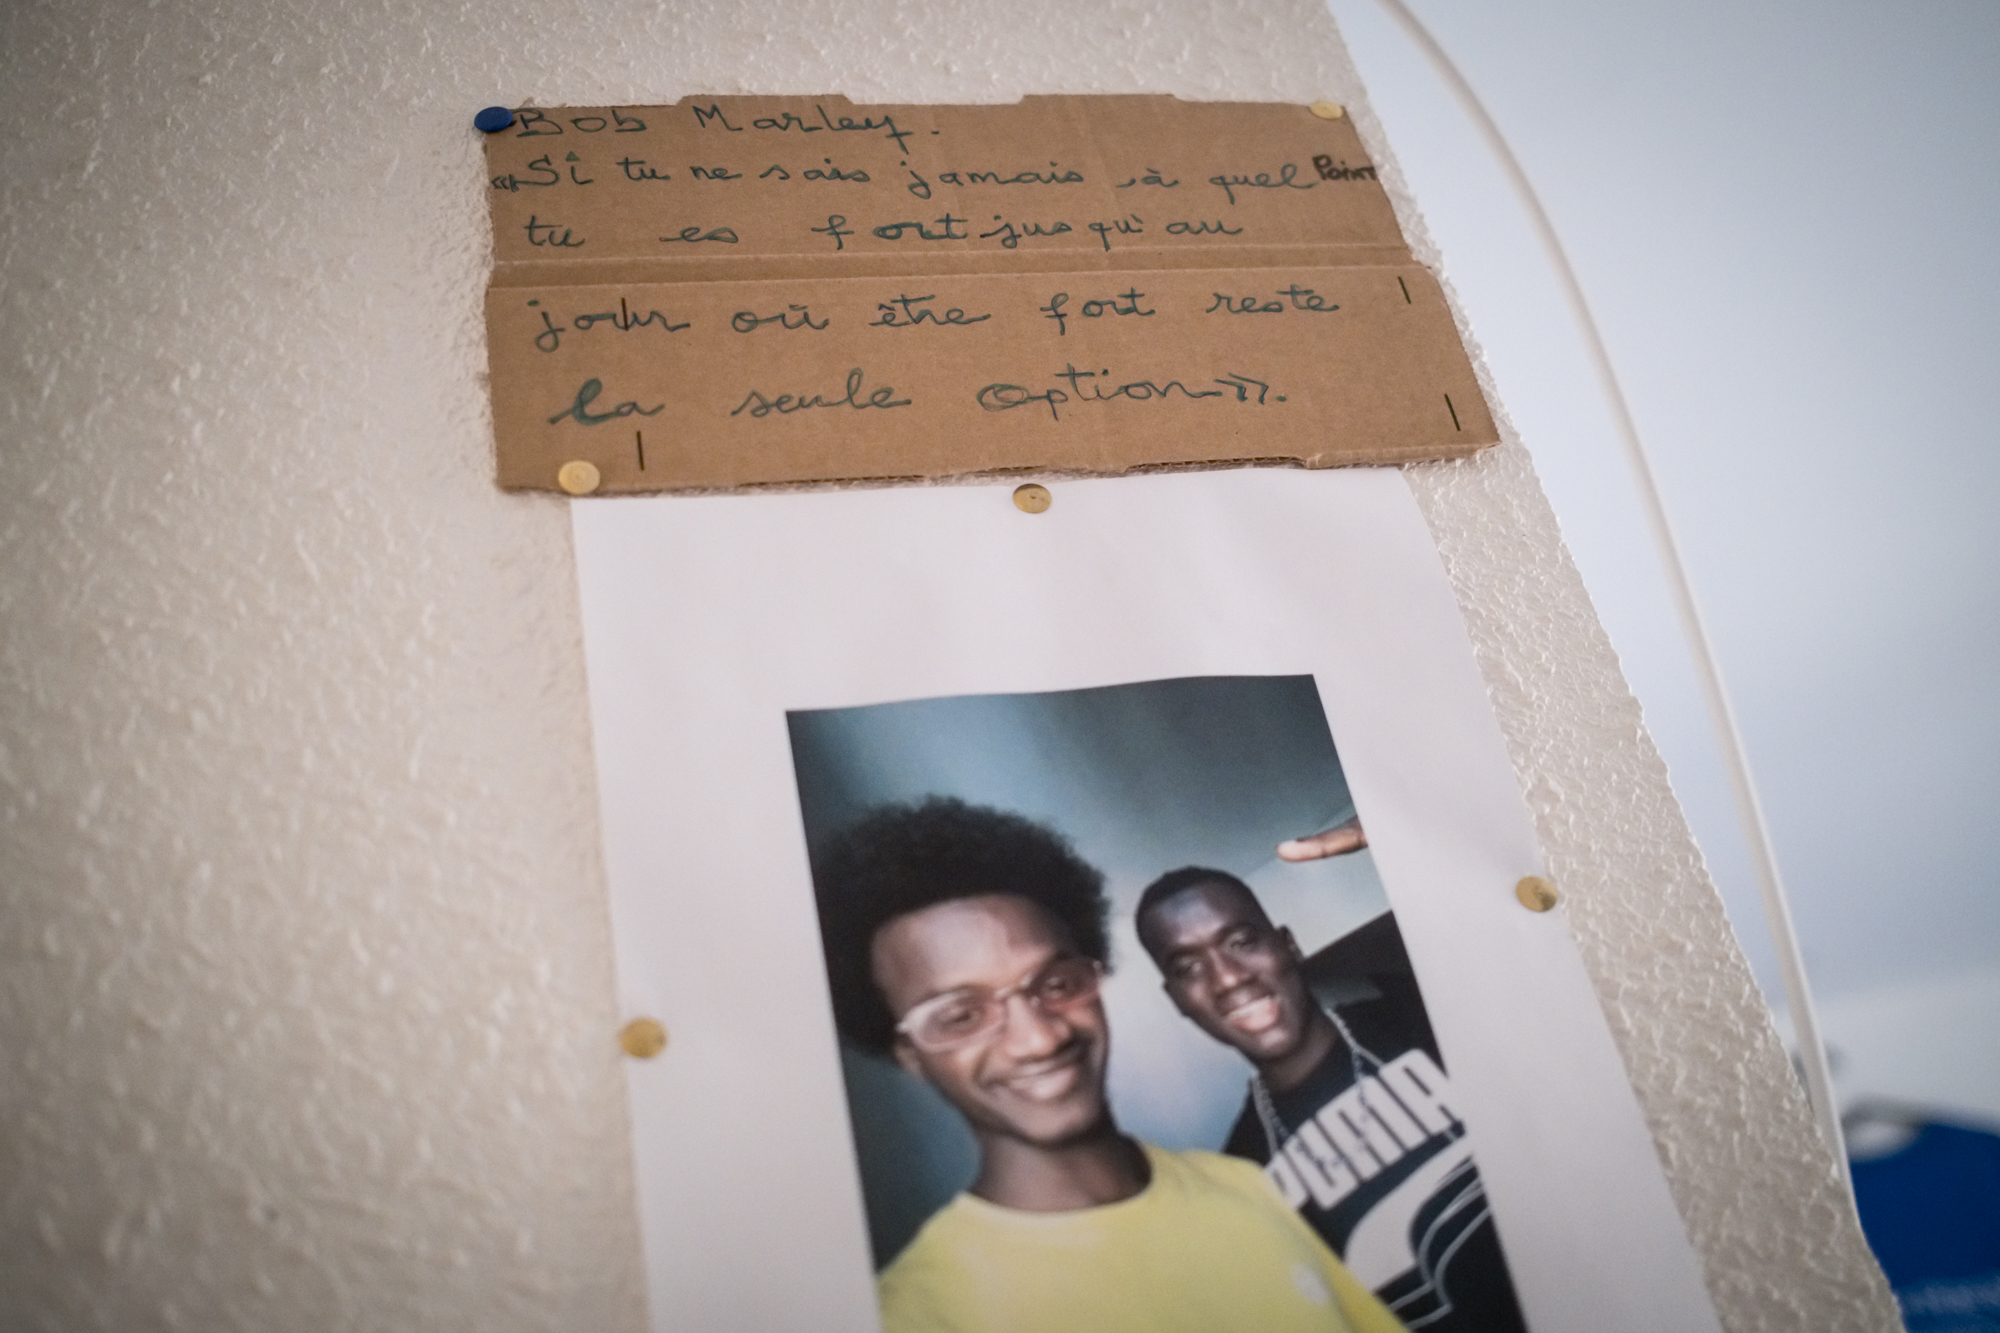 Bob Marley.
«Si tu ne sais jamais à quel Point
tu es fort jusqu'au
jour où être fort reste
la seule option».
PUMA